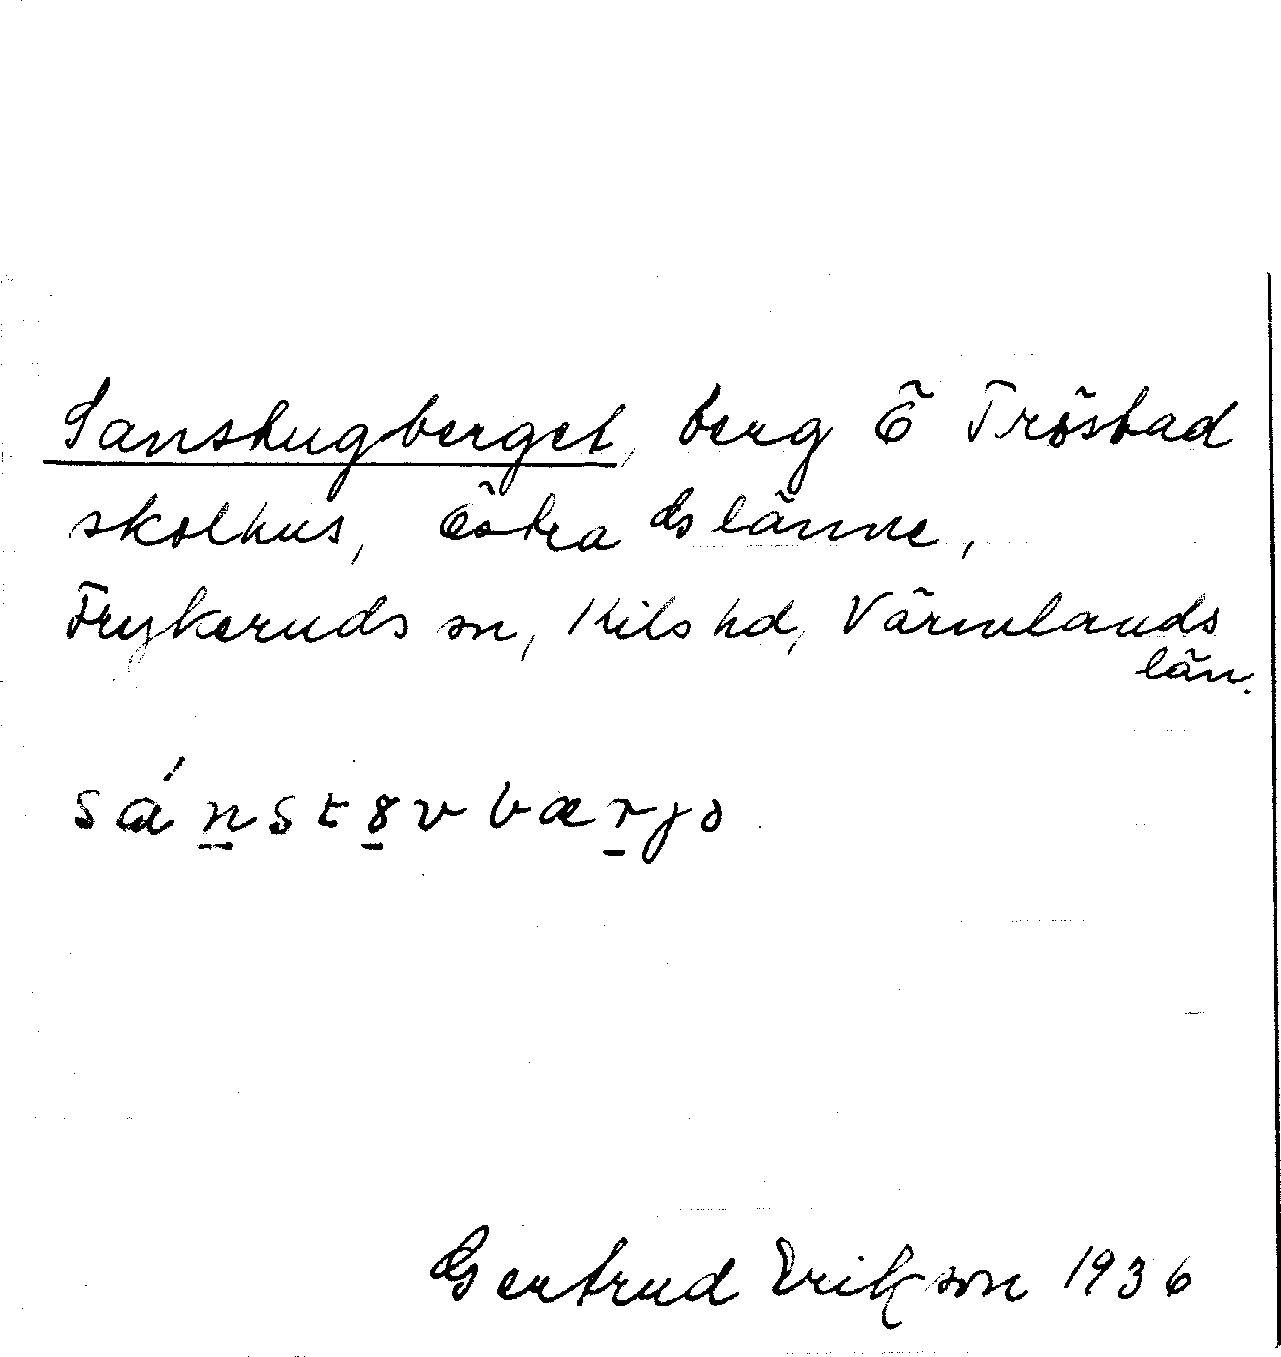 Sanstugberget, berg Ö Tröstad
skolhus, Östra Glänne,
Frykeruds sn, Kils hd, Värmlands
län.
Gertrud Erikson 1936